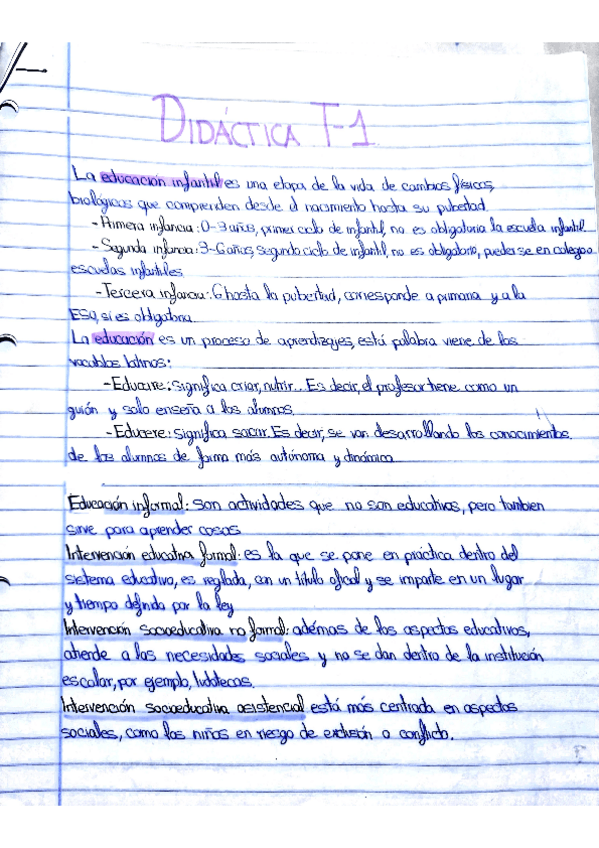 DIDÁCTICA T-1
La educación infantil es una etapa de la vida de cambios físicos,
biológicos que comprenden desde el nacimiento hasta su pubertad.
-Primera infancia: 0-3 años, primer ciclo de infantil, no es obligatoria la escuela infantil.
-Segunda infancia: 3-6 años, segundo ciclo de infantil, no es obligatorio, puede ser en colegio o
escuelas infantiles.
-Tercera infancia: 6 hasta la pubertad, corresponde a primaria y a la
ESO, si es obligatoria.
La educación es un proceso de aprendizajes, está palabra viene de los
vocablos latinos:
-Educare: significa criar, nutrir... Es decir, el profesor tiene como un
guión y solo enseña a los alumnos.
-Educere: significa sacar. Es decir, se van desarrollando los conocimientos
de los alumnos de forma más autónoma y dinámica
Educación informal: son actividades que no son educativas, pero tambien
sirve para aprender cosas
Intervención educativa formal: es la que se pone en práctica dentro del
sistema educativo, es reglada, con un título oficial y se imparte en un lugar
y tiempo definido por la ley
Intervención socioeducativa no formal: además de los aspectos educativos,
atiende a las necesidades sociales y no se dan dentro de la institución
escolar, por ejemplo, ludotecas.
Intervención socioeducativa asistencial está más centrada en aspectos
sociales, como los niños en riesgo de exclusión o conflicto.